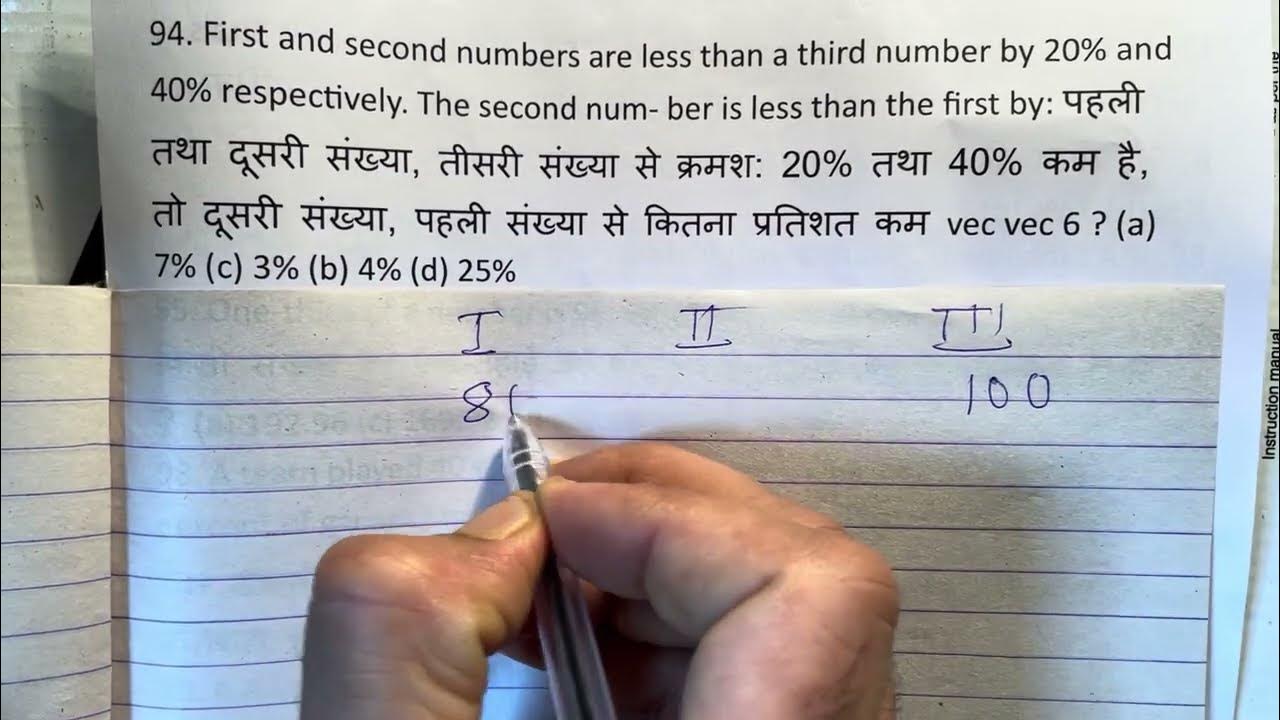 94. First and second numbers are less than a third number by 20% and
40% respectively. The second num- ber is less than the first by: पहली
तथा दूसरी संख्या, तीसरी संख्या से क्रमश: 20% तथा 40% कम है,
तो दूसरी संख्या, पहली संख्या से कितना प्रतिशत कम vec vec 6 ? (a)
7% (c) 3% (b) 4% (d) 25%
I II III
8 100
Instruction manual